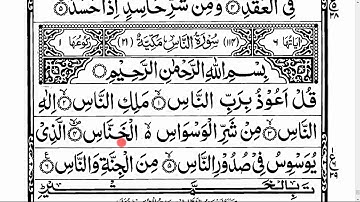 فِي الْعُقَدِ ۙ وَمِنْ شَرِّ حَاسِدٍ اِذَا حَسَدَ
اٰيَاتُهَا ٦ (١١٤) سُوْرَةُ النَّاسِ مَكِّيَّةٌ (٢١) رُكُوْعُهَا ١
بِسْمِ اللّٰهِ الرَّحْمٰنِ الرَّحِيْمِ
قُلْ اَعُوْذُ بِرَبِّ النَّاسِ ۙ مَلِكِ النَّاسِ ۙ اِلٰهِ
النَّاسِ ۙ مِنْ شَرِّ الْوَسْوَاسِ ۙ الْخَنَّاسِ ۙ الَّذِيْ
يُوَسْوِسُ فِيْ صُدُوْرِ النَّاسِ ۙ مِنَ الْجِنَّةِ وَالنَّاسِ